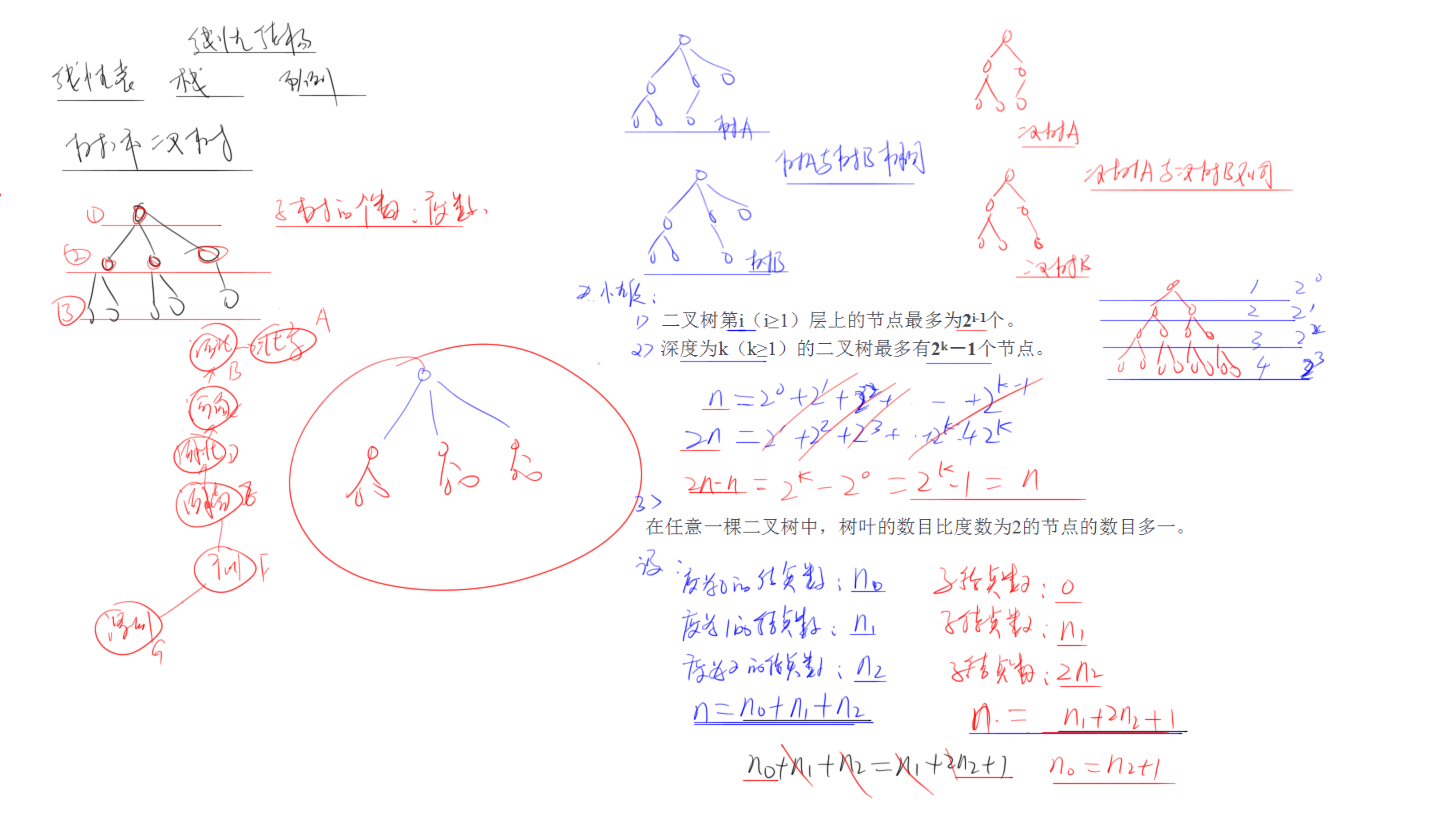 线性结构
线性表 栈 队列
树和二叉树
子树的个数：度数
①
②
③
A
B
D
E
F
G
树A
树A与树B相同
树B
二叉树A
二叉树A与二叉树B不同
二叉树B
2. 性质：
1> 二叉树第i（i≥1）层上的节点最多为2^{i-1}个。
2> 深度为k（k≥1）的二叉树最多有2^k－1个节点。
1 2^0
2 2^1
3 2^2
4 2^3
n = 2^0 + 2^1 + 2^2 + - + 2^{k-1}
2n = 2^1 + 2^2 + 2^3 + ·· + 2^{k-1} + 2^k
2n-n = 2^k - 2^0 = 2^k - 1 = n
3>
在任意一棵二叉树中，树叶的数目比度数为2的节点的数目多一。
设：
度为0的结点数：n₀ 子结点数：0
度为1的结点数：n₁ 子结点数：n₁
度为2的结点数：n₂ 子结点数：2n₂
n = n₀ + n₁ + n₂ n = n₁ + 2n₂ + 1
n₀ + n₁ + n₂ = n₁ + 2n₂ + 1 n₀ = n₂ + 1